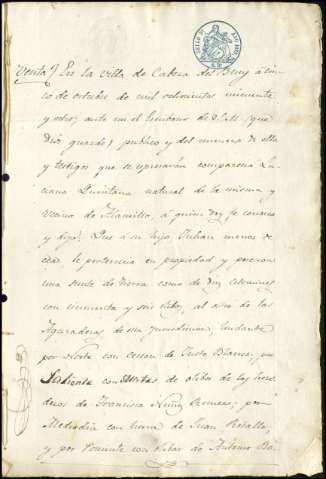 Venta} En la villa de Cabeza del Buey á cin
co de octubre de mil ochocientos cincuenta
y ocho; ante mi el Escribano de S. M. (que
Dios guarde) publico y del numero de ella
y testigos que se espresarán comparece Lu
ciana Quintana natural de la misma y
vecina de Alamillo, á quien doy fe conozco
y dijo: Que á su hijo, Julian menor de
edad le pertenecia en propiedad y
una suerte de tierra como de dos celemines
con cincuenta y seis olibos, al sitio de las
Aguzaderas de esta jurisdiccion, lindante
por Norte con cercon de Justo Blanco; por
Saliente con olibos de las here
deros de Francisco Nuñez Romero; por
Mediodia con tierra de Juan Rebollo,
y por Poniente con olibar de Antonio